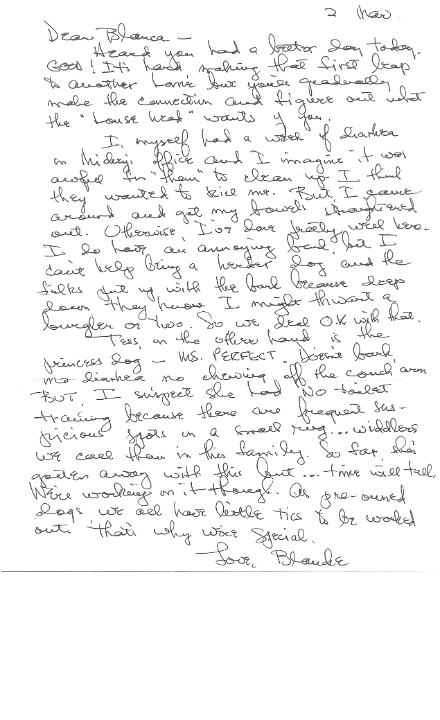 2 Nov.
Dear Blanca –
Heard you had a better day today.
Good! It's hard making that first leap
to another home but you're gradually
make the connection and figure out what
the "house head" wants of you.
I, myself had a week of diarhea
in office and I imagine it was
awful for "them" to clean up. I think
they wanted to kill me. But I came
around and got my bowels straightened
out. Otherwise, I've done pretty well here.
I do have an annoying bark, but I
can't help being a herder dog and the
folks put up with the bark because deep
down they know I might thwart a
burgler or two. So we deal O.K with that.
Tess, on the other hand is the
princess dog – MS. PERFECT. Doesn't bark,
no diarhea no chewing off the couch arm
BUT, I suspect she had NO toilet
training because there are frequent sus-
picious spots in a small ring... widdlers
we call them in this family. So far, she's
gotten away with this but... time will tell.
We're working on it though. As pre-owned
dogs we all have little tics to be worked
out. that's why we're special.
Love, Blondie